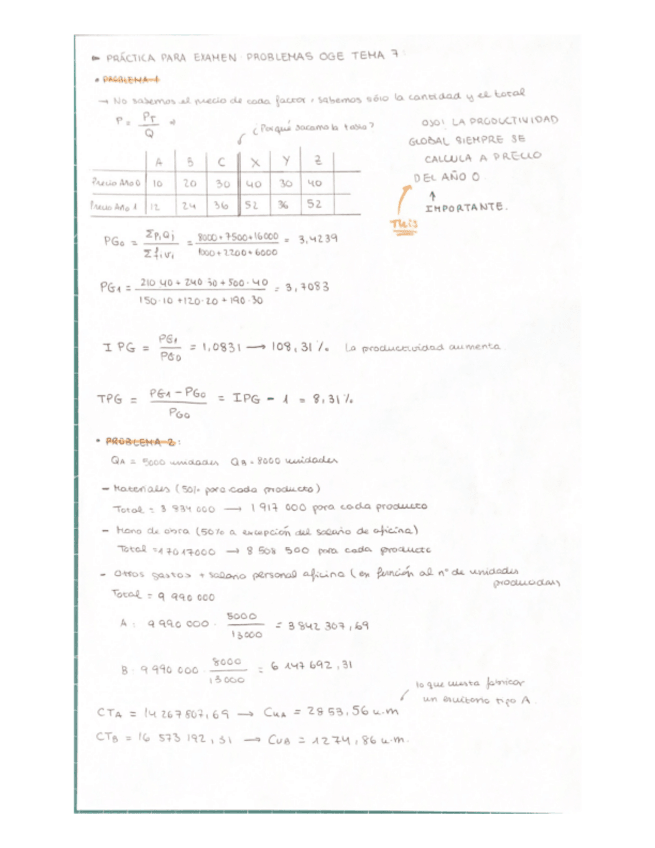 ► PRÁCTICA PARA EXAMEN: PROBLEMAS OGE TEMA 7:
• PROBLEMA 1
→ No sabemos el precio de cada factor, sabemos sólo la cantidad y el total
P = PT / Q ⇒
¿Por qué sacamos la tabla?
OJO! LA PRODUCTIVIDAD
GLOBAL SIEMPRE SE
CALCULA A PRECIO
DEL AÑO 0
↑
IMPORTANTE.
This
A B C X Y Z
Precio Año 0 10 20 30 40 30 40
Precio Año 1 12 24 36 52 36 52
PG0 = ΣPjQj / Σfivi = 8000+7500+16000 / 1000+2200+6000 = 3,4239
PG1 = 210·40 + 240·30 + 500·40 / 150·10 + 120·20 + 190·30 = 3,7083
IPG = PG1 / PG0 = 1,0831 → 108,31% La productividad aumenta
TPG = PG1 - PG0 / PG0 = IPG - 1 = 8,31%
• PROBLEMA 2:
QA = 5000 unidades QB = 8000 unidades
- Materiales (50% para cada producto)
Total = 3 834 000 → 1 917 000 para cada producto
- Mano de obra (50% a excepción del salario de oficina)
Total = 17017000 → 8 508 500 para cada producto
- Otros gastos + salario personal oficina (en función al nº de unidades
producidas)
Total = 9 990 000
A: 9 990 000 · 5000 / 13000 = 3 842 307,69
B: 9 990 000 · 8000 / 13000 = 6 147 692,31
lo que cuesta fabricar
un escritorio tipo A.
CTA = 14 267 807,69 → CuA = 2853,56 u.m.
CTB = 16 573 192,31 → CuB = 1274,86 u.m.